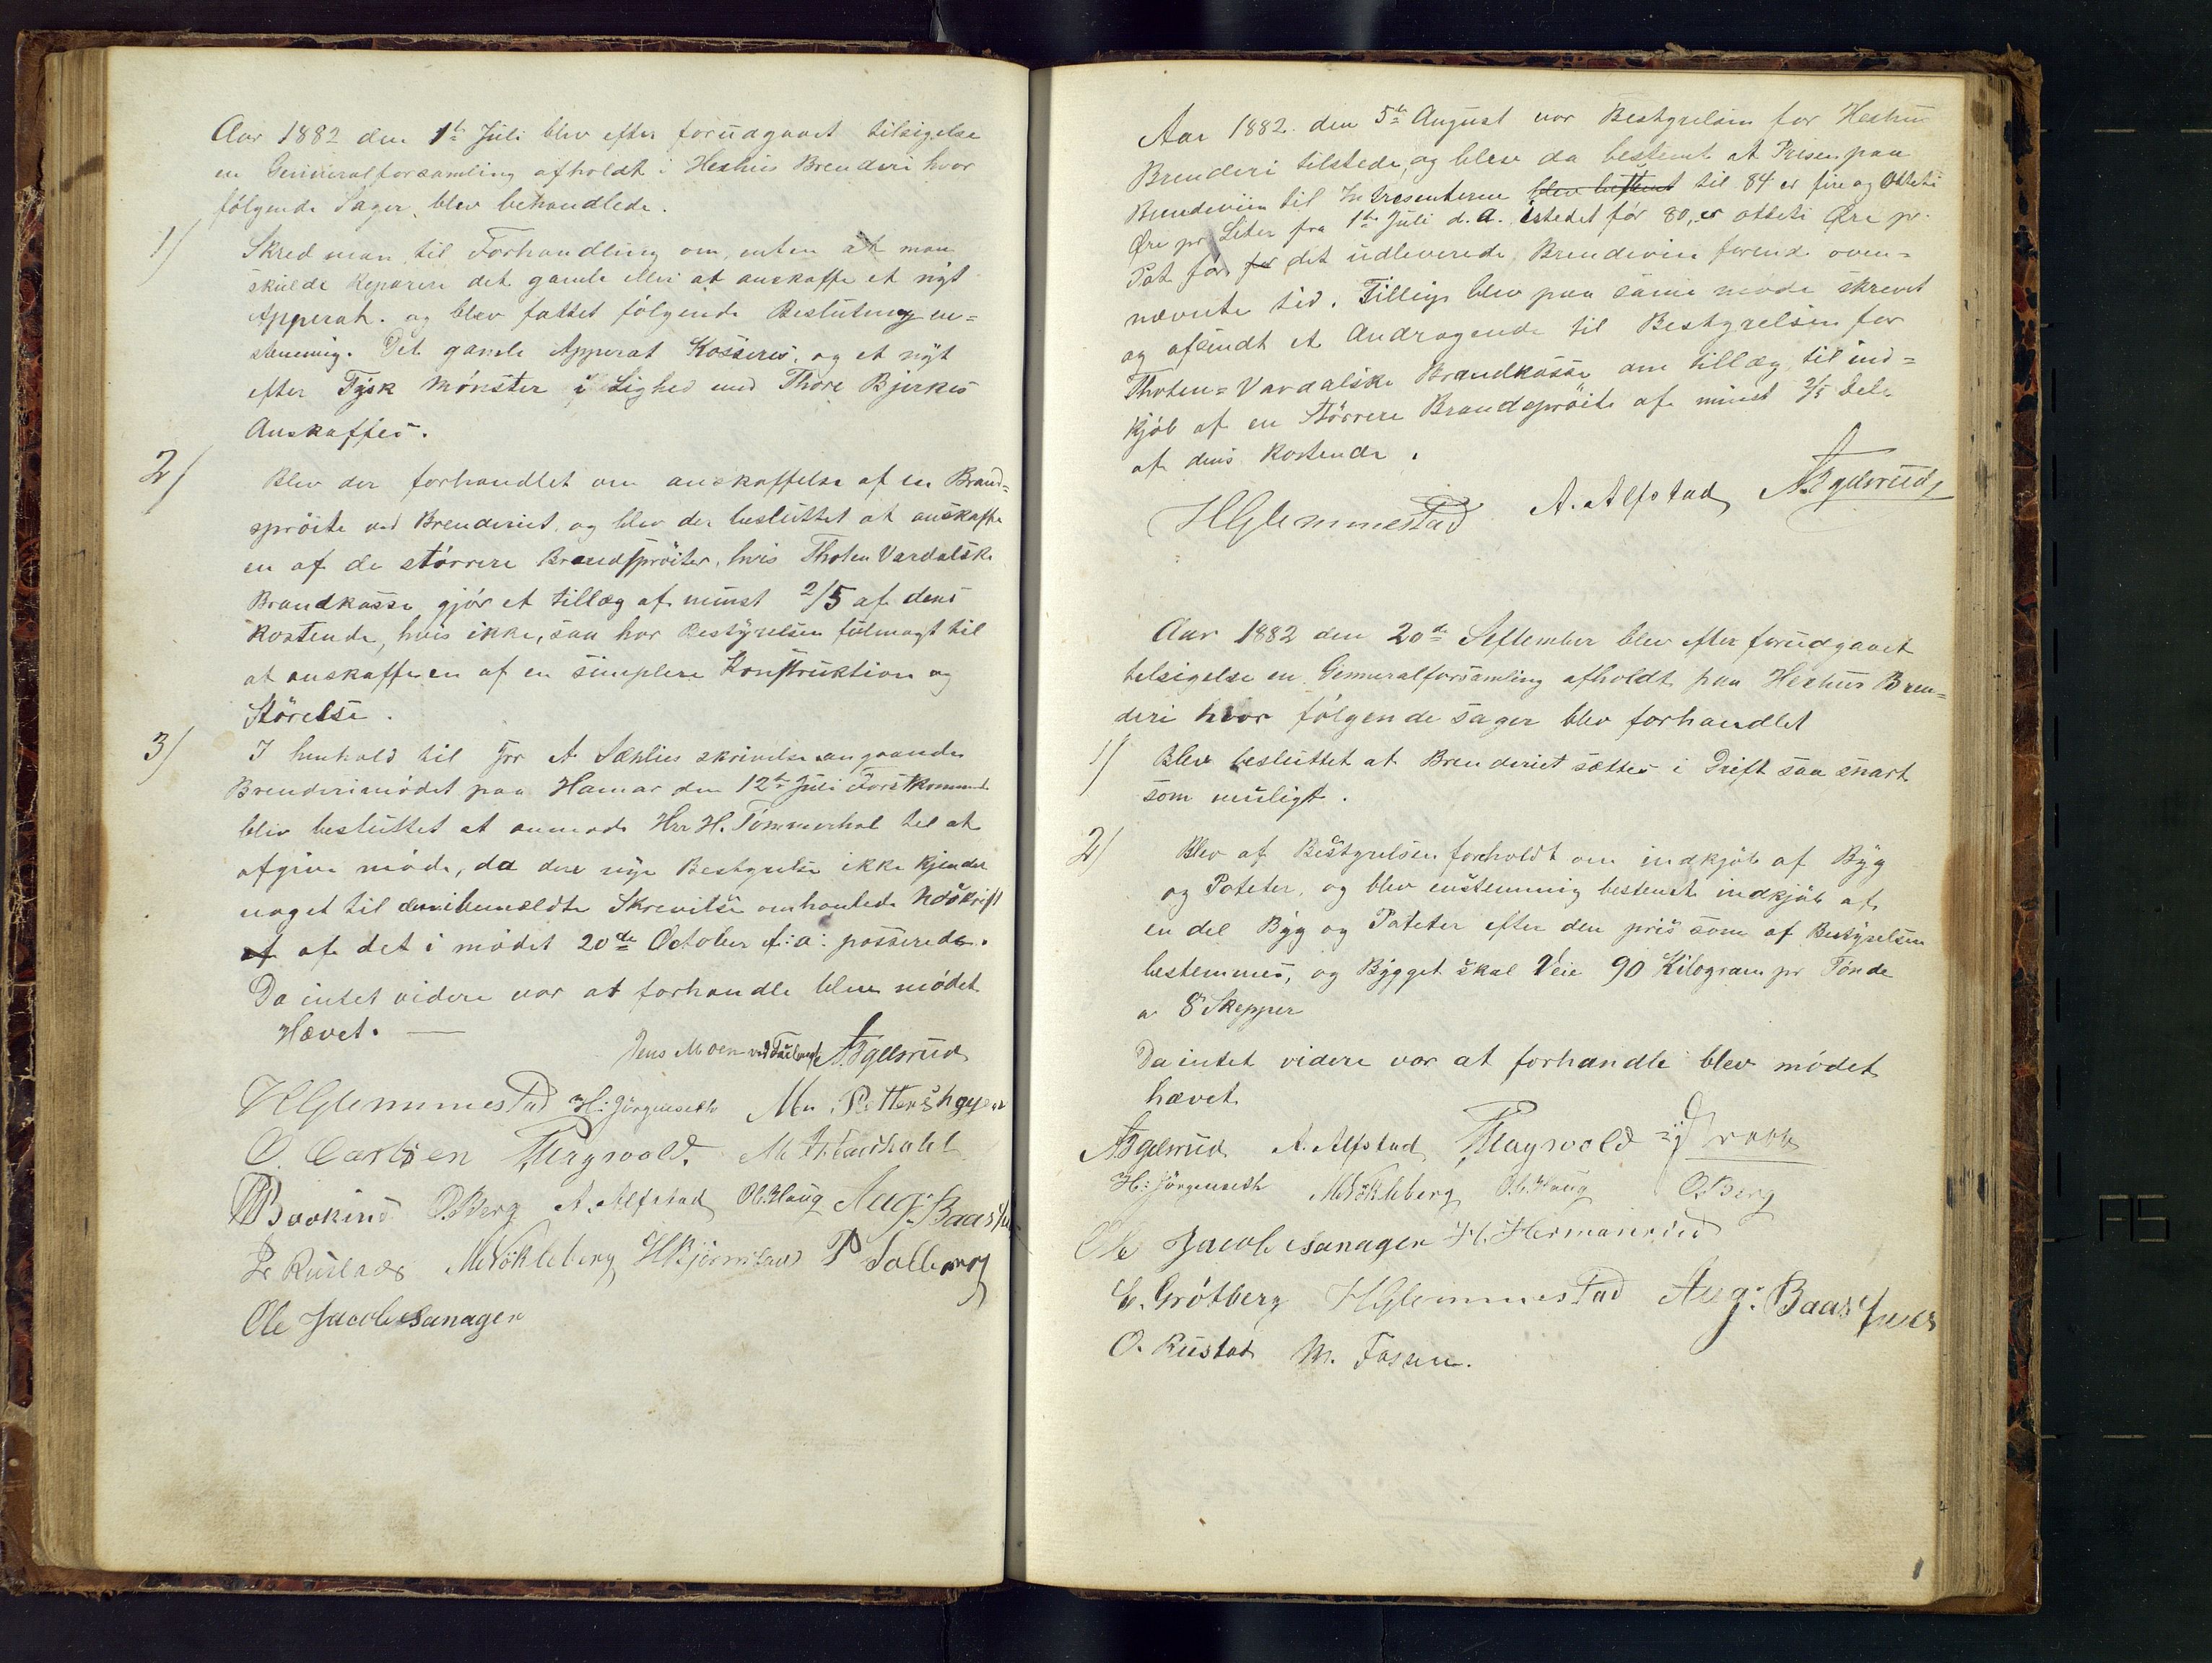 Aar 1882 den 1te Juli blev efter forudgaaet tilsigelse
en Genneralforsamling afholdt i Hexhus Brenderi hvor
følgende Sager blev behandlede.
1) Skred man til Forhandling om, enten at man
skulde Reparere det gamle eller at anskaffe et nyt
Apperat. og blev fattet følgende Beslutning en=
stemmig. Det gamle Apperat Kasseres, og et nyt
efter Tysk Mønster i Lighed med Thore Bjerkes
Anskaffes.
2) Blev der forhandlet om anskaffelse af en Brand=
sprøite ved Brenderiet, og blev der besluttet at anskaffe
en af de størrere Brandsprøiter, hvis Thoten Vardalske
Brandkasse gjør et tillæg af minst 2/5 af dens
Kostende, hvis ikke, saa har Bestyrelsen fulmagt til
at anskaffe en af en simplere Konstruktion og
Størelse.
3) I henhold til Hrr A Sæhlies skrivelse angaaende
Brenderimødet paa Hamar den 12te Juli Førstkommende
blev besluttet at anmode Hrr H. Tømmerhol til at
afgive møde, da den nye Bestyrelse ikke kjender
noget til den ibemældte Skrivelse omhanlede Udskrift
af af det i mødet 20de October f: a: passerede.
Da intet videre var at forhandle blev mødet
Hævet.
Jens Moen A Egelsrud
H Glemmestad H: Jørgenseth Mn. Pettershagen
O. Carlsen
O. Berg A. Alfstad Ol. Haug Aug. Baashuus
M Nøkleberg H Bjørnstad P Solberg
Ole Jacob Sanagen
Aar 1882. den 5te August var Bestyrelsen for Hexhus
Brenderi tilstede, og blev da bestemt at Prisen paa
Brendeviin til Intresenterne blev bestemt til 84 er fire og Otteti
Øre pr Liter fra 1te Juli d. A. istedet før 80, er otteti Øre pr.
Pot før for det udleverede Brendevin førend oven=
nævnte tid. Tilligs blev paa same møde skrevet
og afsendt et Andragende til Bestyrelsen for
Thoten=Vardalske Brandkasse om tillæg til ind=
kjøb af en Størrere Brandsprøite af minst 2/5 Dele
af dens kostende.
H Glemmestad A. Alfstad A Egelsrud
Aar 1882 den 20de September blev efter forudgaaet
telsigelse en Gennuralforsamling afholdt paa Hexhus Bren=
deri hvor følgende sager blev forhandlet
1) Blev besluttet at Brenderiet sættes i Drift saa snart
som muligt.
2) Blev af Bestyrelsen foreholdt om indkjøb af Byg
og Poteter, og blev enstemmig bestemt indkjøb af
en del Byg og Poteter efter den pris som af Bestyrelsen
bestemmes, og Bygget skal Veie 90 Kilogram pr Tønde
a 8 Skepper
Da intet videre var at forhandle blev mødet
hævet.
A Egelsrud A. Alfstad
H: Jørgenseth M Nøkleberg Ol. Haug O. Berg
Ole Jacob Sanagen H. Hermanrud
C. Grøtberg H Glemmestad Aug. Baashuus
O. Rustad M. Fossen.